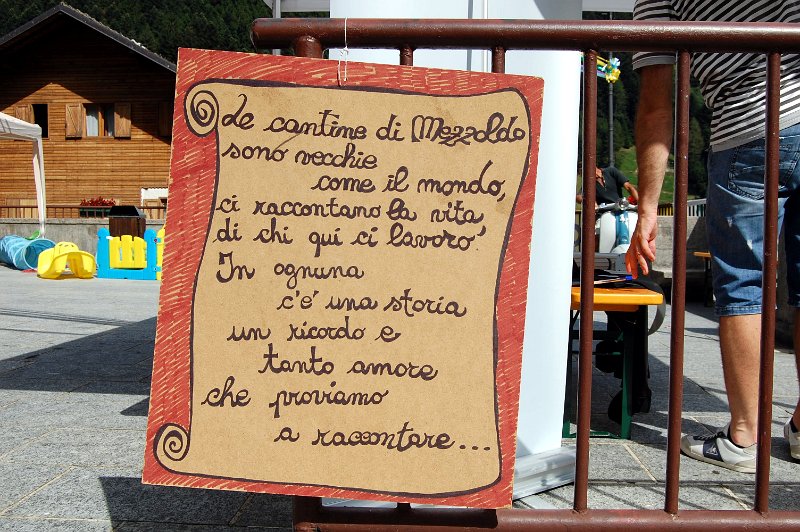 Le cantine di Mezzoldo
sono vecchie
come il mondo,
ci raccontano la vita,
di chi qui ci lavorò.
In ognuna
c'è una storia
un ricordo e
tanto amore
che proviamo
a raccontare...